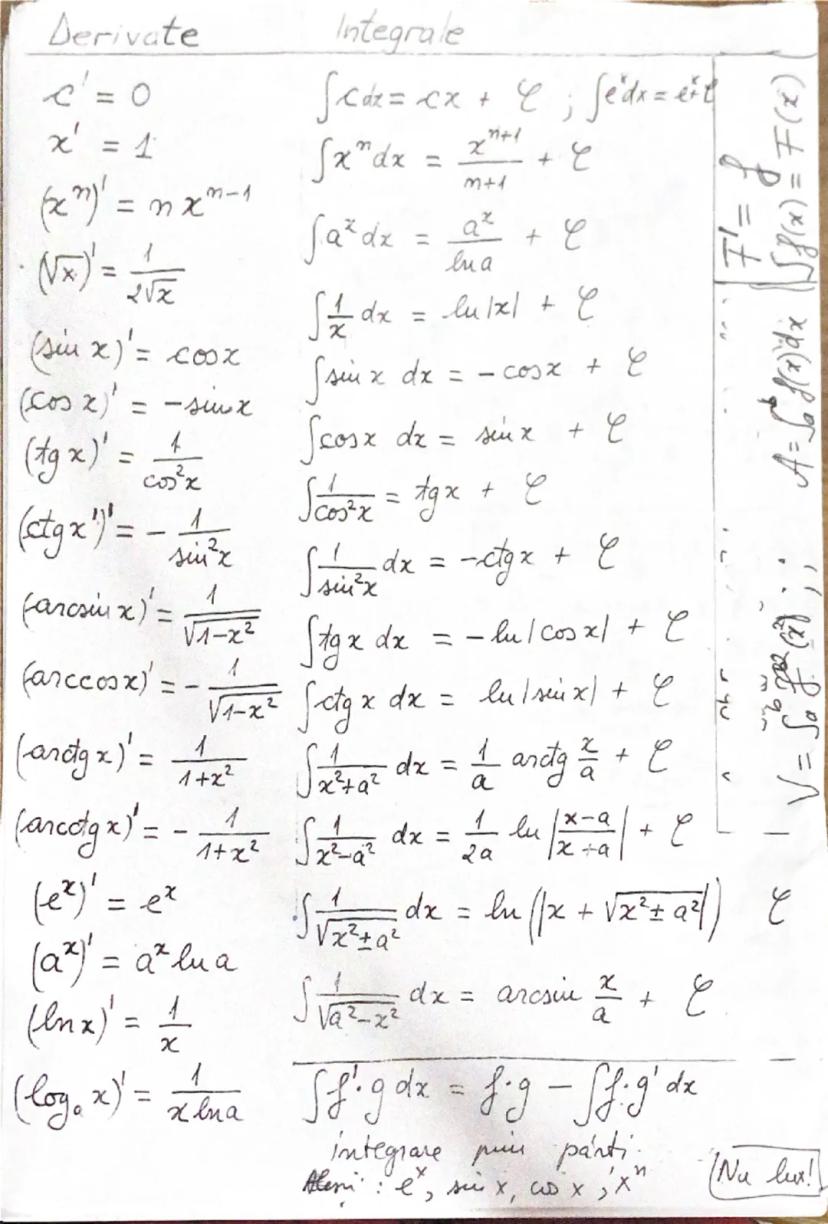 Derivate
c' = 0
x' = 1
(xⁿ)' = n xⁿ⁻¹
(√x)' = 1/(2√x)
(sin x)' = cos x
(cos x)' = -sin x
(tg x)' = 1/cos²x
(ctg x')' = - 1/sin²x
(arcsin x)' = 1/√(1-x²)
(arccos x)' = - 1/√(1-x²)
(arctg x)' = 1/(1+x²)
(arcctg x)' = - 1/(1+x²)
(eˣ)' = eˣ
(aˣ)' = aˣ ln a
(ln x)' = 1/x
(logₐ x)' = 1/(x ln a)
Integrale
∫c dx = cx + C ; ∫eˣdx = eˣ+C
∫xⁿ dx = xⁿ⁺¹/(n+1) + C
∫aˣ dx = aˣ/ln a + C
∫1/x dx = ln |x| + C
∫sin x dx = - cos x + C
∫cos x dx = sin x + C
∫1/cos²x = tg x + C
∫1/sin²x dx = -ctg x + C
∫tg x dx = - ln |cos x| + C
∫ctg x dx = ln |sin x| + C
∫1/(x²+a²) dx = 1/a arctg x/a + C
∫1/(x²-a²) dx = 1/2a ln |(x-a)/(x+a)| + C
∫1/√(x²±a²) dx = ln (|x + √(x²±a²)|) C
∫1/√(a²-x²) dx = arcsin x/a + C
∫f'·g dx = f·g - ∫f·g' dx
integrare prin părți
: eˣ, sin x, cos x, xⁿ
Nu lux!
F' = f
∫f(x) = F(x)
A = ∫ₐᵇ f(x) dx